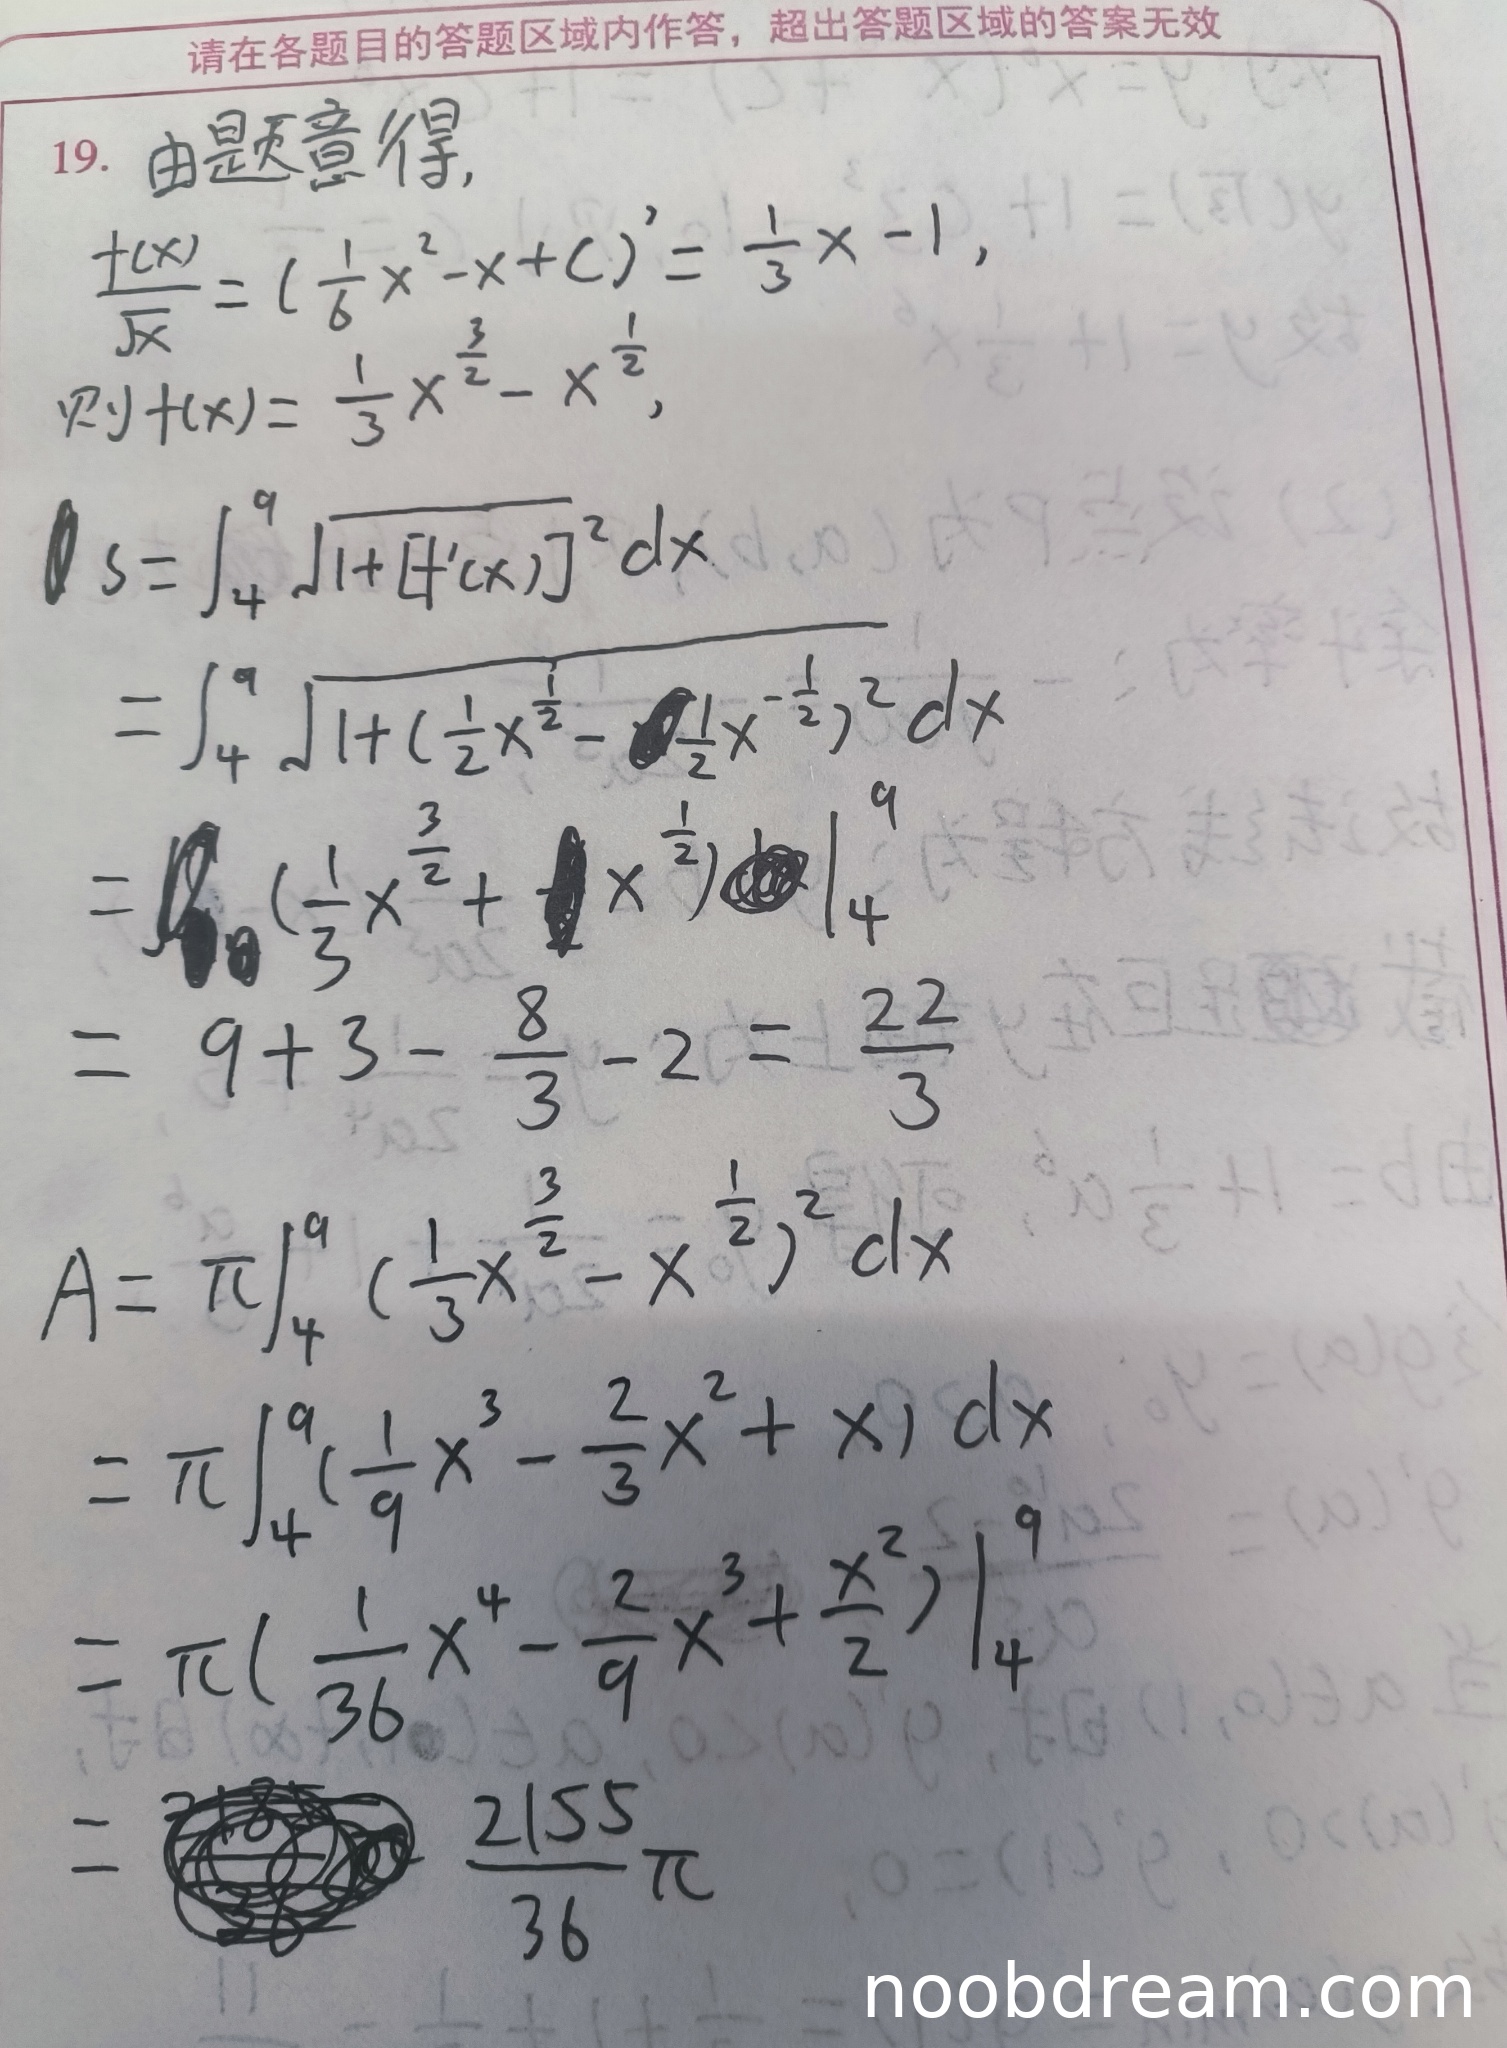 请在各题目的答题区域内作答，超出答题区域的答案无效
19. 由题意得,
f(x)/√x = (1/6 x² - x + C)' = 1/3 x - 1,
则 f(x) = 1/3 x^(3/2) - x^(1/2),
s = ∫₄⁹ √(1+[f'(x)]²) dx
= ∫₄⁹ √(1+(1/2 x^(1/2) - 1/2 x^(-1/2))²) dx
= (1/3 x^(3/2) + x^(1/2)) |₄⁹
= 9 + 3 - 8/3 - 2 = 22/3
A = π∫₄⁹ (1/3 x^(3/2) - x^(1/2))² dx
= π∫₄⁹ (1/9 x³ - 2/3 x² + x) dx
= π(1/36 x⁴ - 2/9 x³ + x²/2) |₄⁹
= 2155/36 π
noobdream.com